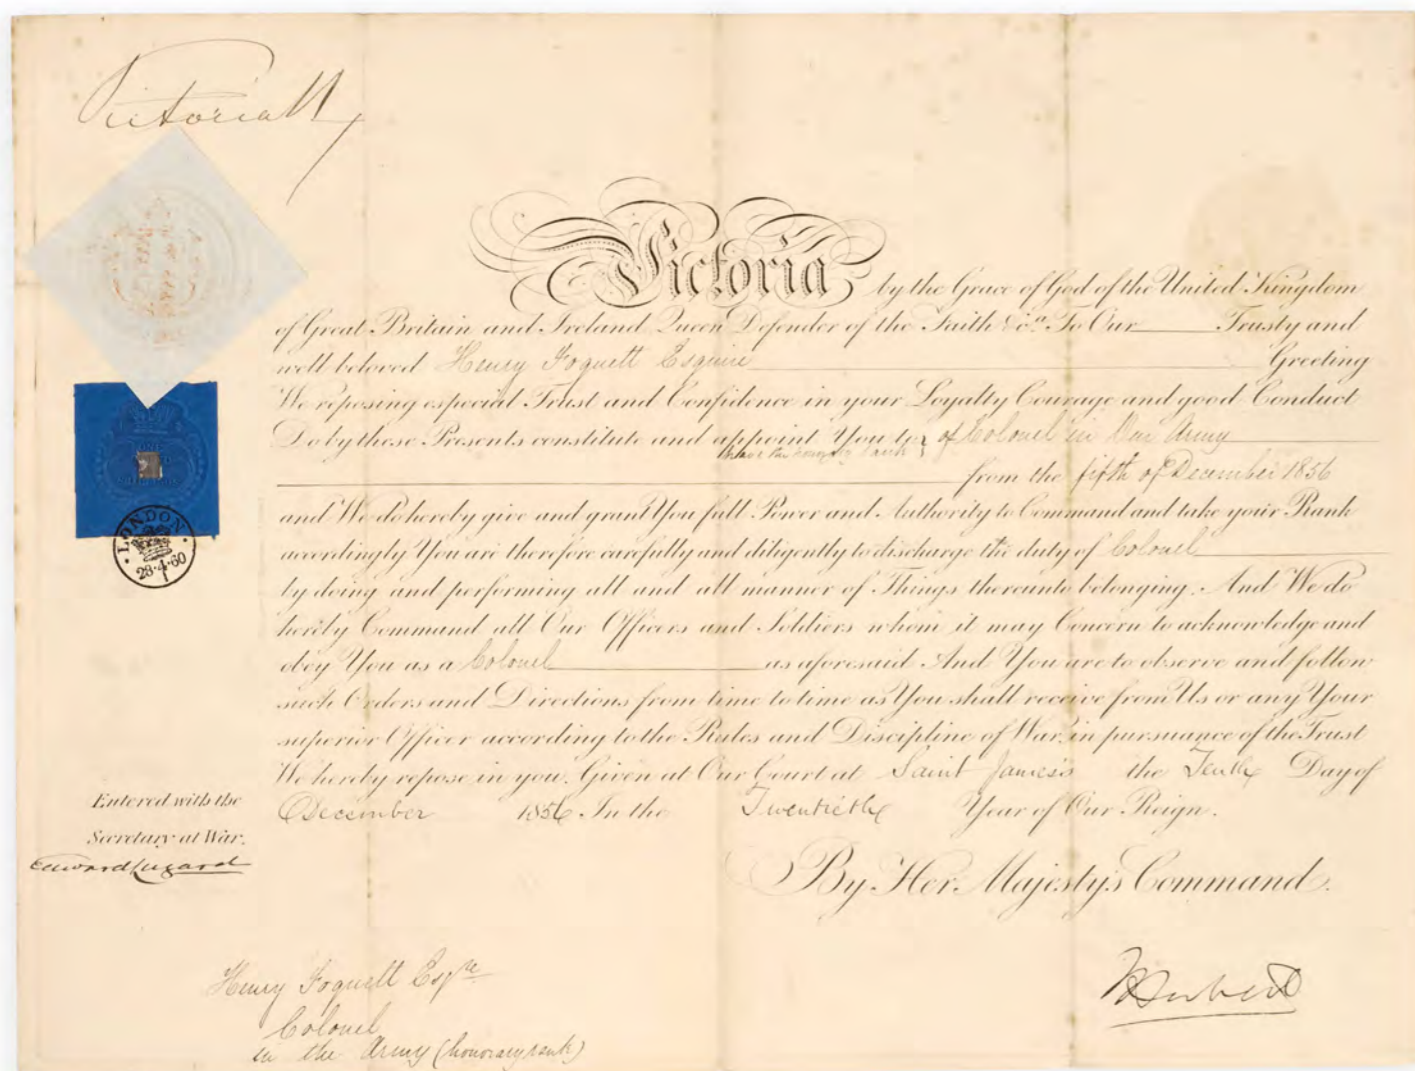 Victoria R
Victoria by the Grace of God of the United Kingdom
of Great Britain and Ireland Queen Defender of the Faith &c.a To Our Trusty and
well beloved Henry Foquett Esquire Greeting
We reposing especial Trust and Confidence in your Loyalty Courage and good Conduct
Do by these Presents constitute and appoint You to } of Colonel in Our Army
have the honorary rank
from the fifth of December 1856
and We do hereby give and grant You full Power and Authority to Command and take your Rank
accordingly You are therefore carefully and diligently to discharge the duty of Colonel
LONDON
28.4.60
by doing and performing all and all manner of Things thereunto belonging. And We do
hereby Command all Our Officers and Soldiers whom it may Concern to acknowledge and
obey You as a Colonel as aforesaid And You are to observe and follow
such Orders and Directions from time to time as You shall receive from Us or any Your
superior Officer according to the Rules and Discipline of War, in pursuance of the Trust
We hereby repose in you. Given at Our Court at Saint James's the Tenth Day of
December 1856 In the Twentieth Year of Our Reign.
Entered with the
Secretary at War.
Edward Lugard
By Her Majesty's Command.
Henry Foquett Esqre
Colonel
in the Army (honorary rank)